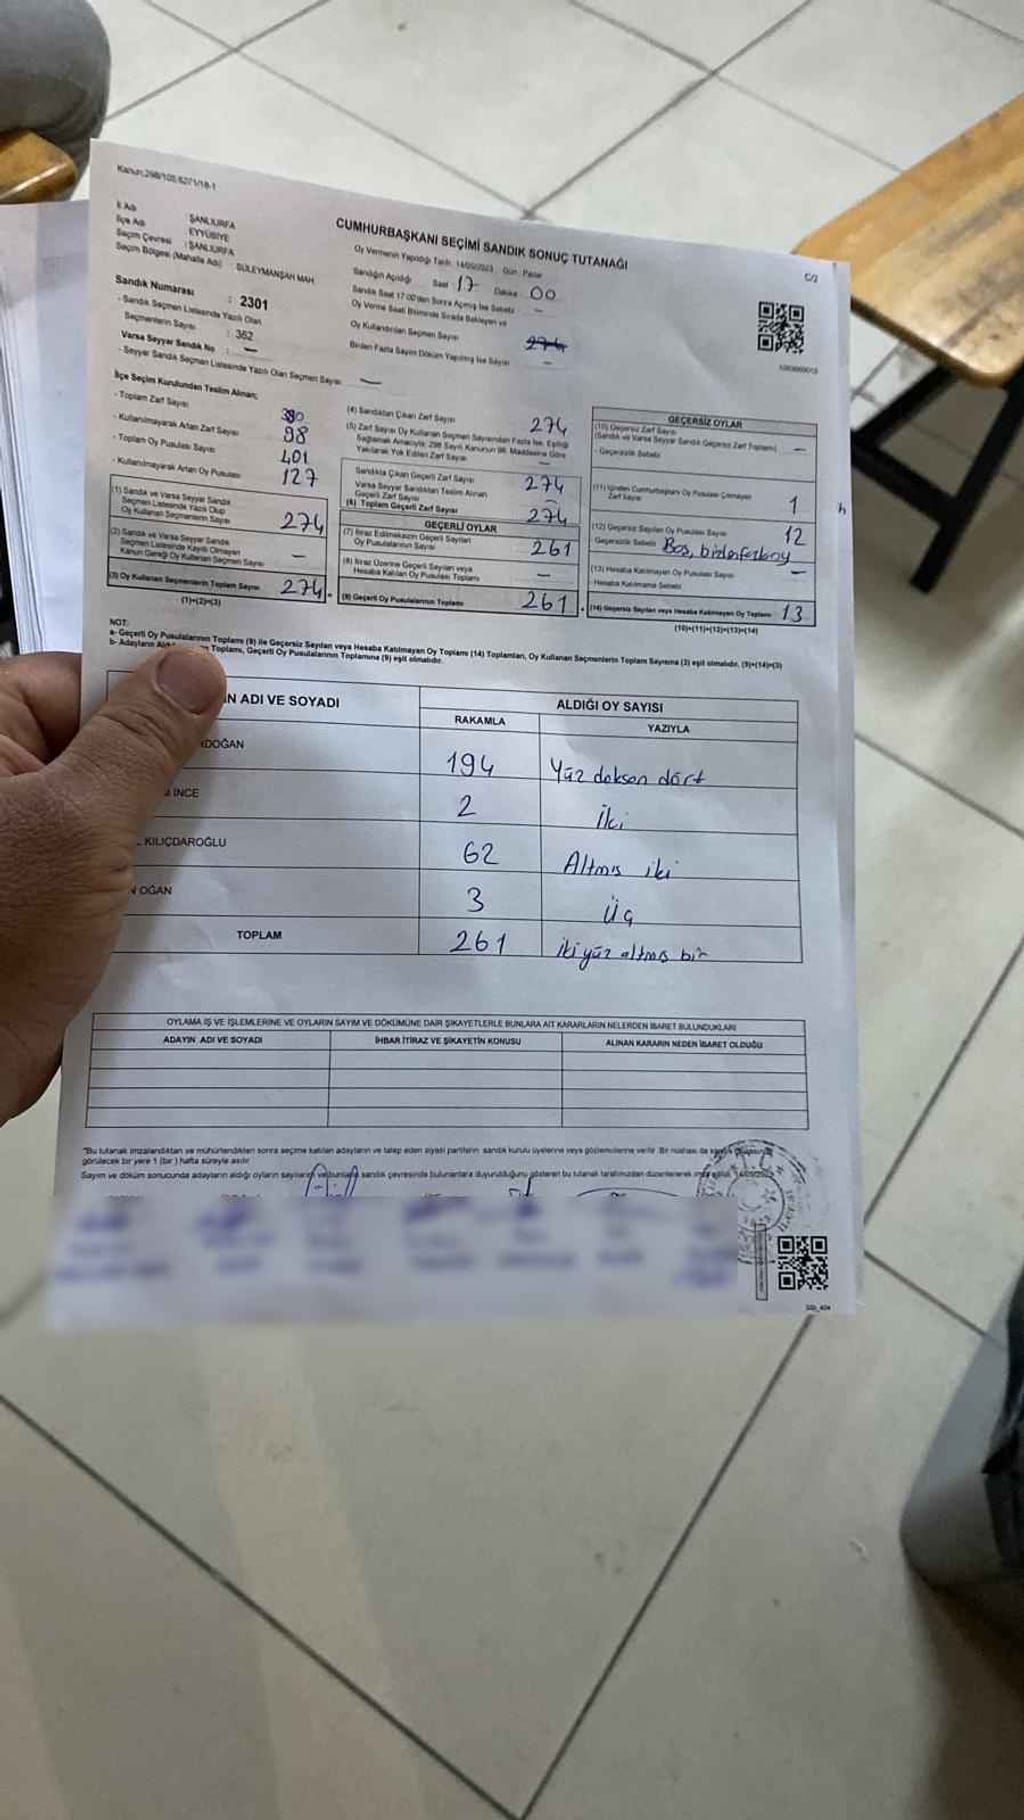 Kanun;298/105,6271/18-1
C/2
CUMHURBAŞKANI SEÇİMİ SANDIK SONUÇ TUTANAĞI
İl Adı : ŞANLIURFA
İlçe Adı : EYYÜBİYE
Seçim Çevresi : ŞANLIURFA
Seçim Bölgesi (Mahalle Adı) : SÜLEYMANŞAH MAH.
Sandık Numarası : 2301
- Sandık Seçmen Listesinde Yazılı Olan
Seçmenlerin Sayısı : 362
Varsa Seyyar Sandık No : —
- Seyyar Sandık Seçmen Listesinde Yazılı Olan Seçmen Sayısı —
Oy Vermenin Yapıldığı Tarih: 14/05/2023 Gün: Pazar
Sandığın Açıldığı Saat 17 Dakika 00
Sandık Saat 17.00'den Sonra Açılmış İse Sebebi —
Oy Verme Saati Bitiminde Sırada Bekleyen ve
Oy Kullandırılan Seçmen Sayısı 274
Birden Fazla Sayım Döküm Yapılmış İse Sayısı —
İlçe Seçim Kurulundan Teslim Alınan;
- Toplam Zarf Sayısı 380
- Kullanılmayarak Artan Zarf Sayısı 98
- Toplam Oy Pusulası Sayısı 401
- Kullanılmayarak Artan Oy Pusulası 127
(1) Sandık ve Varsa Seyyar Sandık
Seçmen Listesinde Yazılı Olup
Oy Kullanan Seçmenlerin Sayısı 274
(2) Sandık ve Varsa Seyyar Sandık
Seçmen Listesinde Kayıtlı Olmayan
Kanun Gereği Oy Kullanan Seçmen Sayısı —
(3) Oy Kullanan Seçmenlerin Toplam Sayısı 274
(1)+(2)=(3)
(4) Sandıktan Çıkan Zarf Sayısı 274
(5) Zarf Sayısı Oy Kullanan Seçmen Sayısından Fazla İse, Eşitliği
Sağlamak Amacıyla, 298 Sayılı Kanunun 98. Maddesine Göre
Yakılarak Yok Edilen Zarf Sayısı —
Sandıkta Çıkan Geçerli Zarf Sayısı 274
Varsa Seyyar Sandıktan Teslim Alınan
Geçerli Zarf Sayısı —
(6) Toplam Geçerli Zarf Sayısı 274
GEÇERLİ OYLAR
(7) İtiraz Edilmeksizin Geçerli Sayılan
Oy Pusulalarının Sayısı 261
(8) İtiraz Üzerine Geçerli Sayılan veya
Hesaba Katılan Oy Pusulası Toplamı —
(9) Geçerli Oy Pusulalarının Toplamı 261
GEÇERSİZ OYLAR
(10) Geçersiz Zarf Sayısı
(Sandık ve Varsa Seyyar Sandık Geçersiz Zarf Toplamı) —
- Geçersizlik Sebebi
(11) İçinden Cumhurbaşkanı Oy Pusulası Çıkmayan
Zarf Sayısı 1
(12) Geçersiz Sayılan Oy Pusulası Sayısı 12
Geçersizlik Sebebi Boş,
(13) Hesaba Katılmayan Oy Pusulası Sayısı —
Hesaba Katılmama Sebebi
(14) Geçersiz Sayılan veya Hesaba Katılmayan Oy Toplamı 13
(10)+(11)+(12)+(13)=(14)
NOT:
a- Geçerli Oy Pusulalarının Toplamı (9) ile Geçersiz Sayılan veya Hesaba Katılmayan Oy Toplamı (14) Toplamları, Oy Kullanan Seçmenlerin Toplam Sayısına (3) eşit olmalıdır. (9)+(14)=(3)
b- Adayların Toplamı, Geçerli Oy Pusulalarının Toplamına (9) eşit olmalıdır.
N ADI VE SOYADI ALDIĞI OY SAYISI
RAKAMLA YAZIYLA
RDOĞAN 194 Yüz doksan dört
İNCE 2 İki
KILIÇDAROĞLU 62 Altmış iki
N OĞAN 3 Üç
TOPLAM 261 iki yüz altmış bir
OYLAMA İŞ VE İŞLEMLERİNE VE OYLARIN SAYIM VE DÖKÜMÜNE DAİR ŞİKAYETLERLE BUNLARA AİT KARARLARIN NELERDEN İBARET BULUNDUKLARI
ADAYIN ADI VE SOYADI İHBAR İTİRAZ VE ŞİKAYETİN KONUSU ALINAN KARARIN NEDEN İBARET OLDUĞU
"Bu tutanak imzalandıktan ve mühürlendikten sonra seçime katılan adayların ve talep eden siyasi partilerin sandık kurulu üyelerine veya gözlemcilerine verilir. Bir nüshası da
görülecek bir yere 1 (bir) hafta süreyle asılır.
Sayım ve döküm sonucunda adayların aldığı oyların sayılarını sandık çevresinde bulunanlara duyurulduğunu gösteren bu tutanak tarafımızdan düzenlenerek